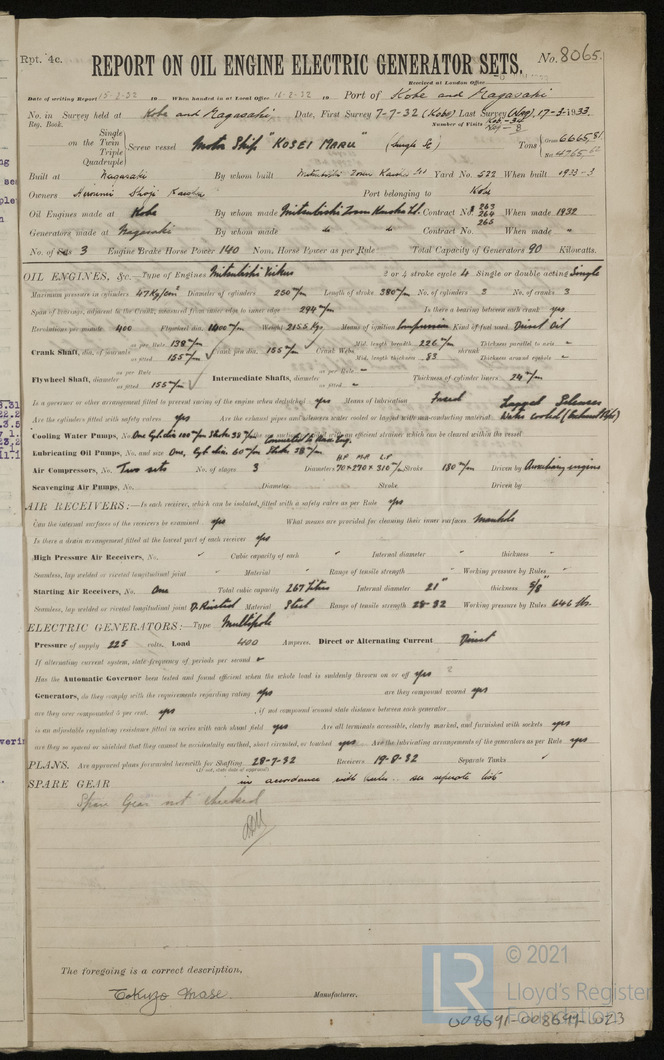 Rpt. 4c.
REPORT ON OIL ENGINE ELECTRIC GENERATOR SETS.
No. 8065.
Received at London Office
Date of writing Report 15-2-32 19 When handed in at Local Office 16-2-32 19 Port of Kobe and Nagasaki
No. in Survey held at Kobe and Nagasaki Date, First Survey 7-7-32 (Kobe) Last Survey (Nag.) 17-3-1933
Reg. Book. Number of Visits Nag - 8
Single on the Twin Triple Quadruple Screw vessel Motor Ship "KOSEI MARU" (Single Sc) Tons Gross 6665.81 Net 4765
Built at Nagasaki By whom built Mitsubishi Zosen Kaisha Ltd Yard No. 522 When built 1933-3
Owners Shoji Kaisha Port belonging to Kobe
Oil Engines made at Kobe By whom made Mitsubishi Zosen Kaisha Ld. Contract No. 263 264 265 When made 1932
Generators made at Nagasaki By whom made do do Contract No. When made "
No. of Sets 3 Engine Brake Horse Power 140 Nom. Horse Power as per Rule Total Capacity of Generators 90 Kilowatts.
OIL ENGINES, &c. Type of Engines Mitsubishi Vickers 2 or 4 stroke cycle 4 Single or double acting Single
Maximum pressure in cylinders 47 Kg/cm² Diameter of cylinders 250 m/m Length of stroke 380 m/m No. of cylinders 3 No. of cranks 3
Span of bearings, adjacent to the Crank, measured from inner edge to inner edge 294 m/m Is there a bearing between each crank yes
Revolutions per minute 400 Flywheel dia. 1400 m/m Weight 2155 Kgs Means of ignition Compression Kind of fuel used Diesel Oil
Crank Shaft, dia. of journals as per Rule 138 m/m as fitted 155 m/m Crank pin dia. 155 m/m Crank Webs Mid. length breadth 226 m/m Mid. length thickness 83 shrunk Thickness parallel to axis " Thickness around eyehole "
Flywheel Shaft, diameter as per Rule as fitted 155 m/m Intermediate Shafts, diameter as per Rule " as fitted " Thickness of cylinder liners 24 m/m
Is a governor or other arrangement fitted to prevent racing of the engine when declutched yes Means of lubrication Forced
Are the cylinders fitted with safety valves yes Are the exhaust pipes and silencers water cooled or lagged with non-conducting material Lagged Silencers Water cooled (Exhaust Pipe)
Cooling Water Pumps, No. One Cyl dia 100 m/m Stroke 38 m/m
Lubricating Oil Pumps, No. and size One, Cyl dia 60 m/m Stroke 38 m/m
Air Compressors, No. Two sets No. of stages 3 Diameters H.P. M.P. L.P. 70 x 270 x 310 m/m Stroke 180 m/m Driven by Auxiliary engine
Scavenging Air Pumps, No. Diameter Stroke Driven by
AIR RECEIVERS:—Is each receiver, which can be isolated, fitted with a safety valve as per Rule yes
Can the internal surfaces of the receivers be examined yes What means are provided for cleaning their inner surfaces Manhole
Is there a drain arrangement fitted at the lowest part of each receiver yes
High Pressure Air Receivers, No. Cubic capacity of each " Internal diameter " thickness "
Seamless, lap welded or riveted longitudinal joint " Material " Range of tensile strength " Working pressure by Rules "
Starting Air Receivers, No. One Total cubic capacity 267 Litres Internal diameter 21" thickness 5/8"
Seamless, lap welded or riveted longitudinal joint D. Riveted Material Steel Range of tensile strength 28-32 Working pressure by Rules 646 lbs.
ELECTRIC GENERATORS:— Type Multipole
Pressure of supply 225 volts. Load 400 Amperes. Direct or Alternating Current Direct
If alternating current system, state frequency of periods per second "
Has the Automatic Governor been tested and found efficient when the whole load is suddenly thrown on or off yes
Generators, do they comply with the requirements regarding rating yes are they compound wound yes
are they over compounded 5 per cent. yes , if not compound wound state distance between each generator
is an adjustable regulating resistance fitted in series with each shunt field yes Are all terminals accessible, clearly marked, and furnished with sockets yes
are they so spaced or shielded that they cannot be accidentally earthed, short circuited, or touched yes Are the lubricating arrangements of the generators as per Rule yes
PLANS. Are approved plans forwarded herewith for Shafting 28-7-32 Receivers 19-8-32 Separate Tanks
(If not, state date of approval)
SPARE GEAR in accordance with rules. see separate list
Spare Gear not checked
The foregoing is a correct description,
Manufacturer.
© 2021
LR
Lloyd's Register
Foundation
008691-008699-0023